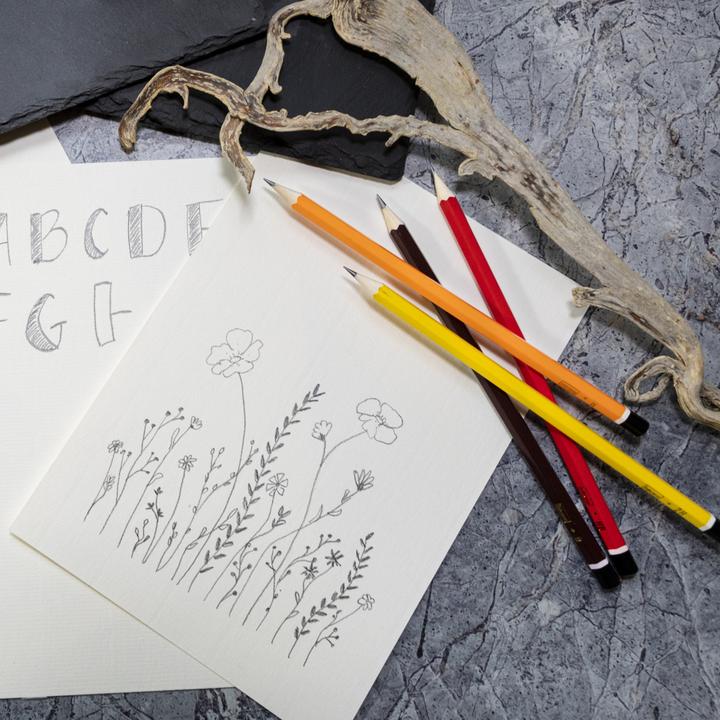 ABCDE
FGH